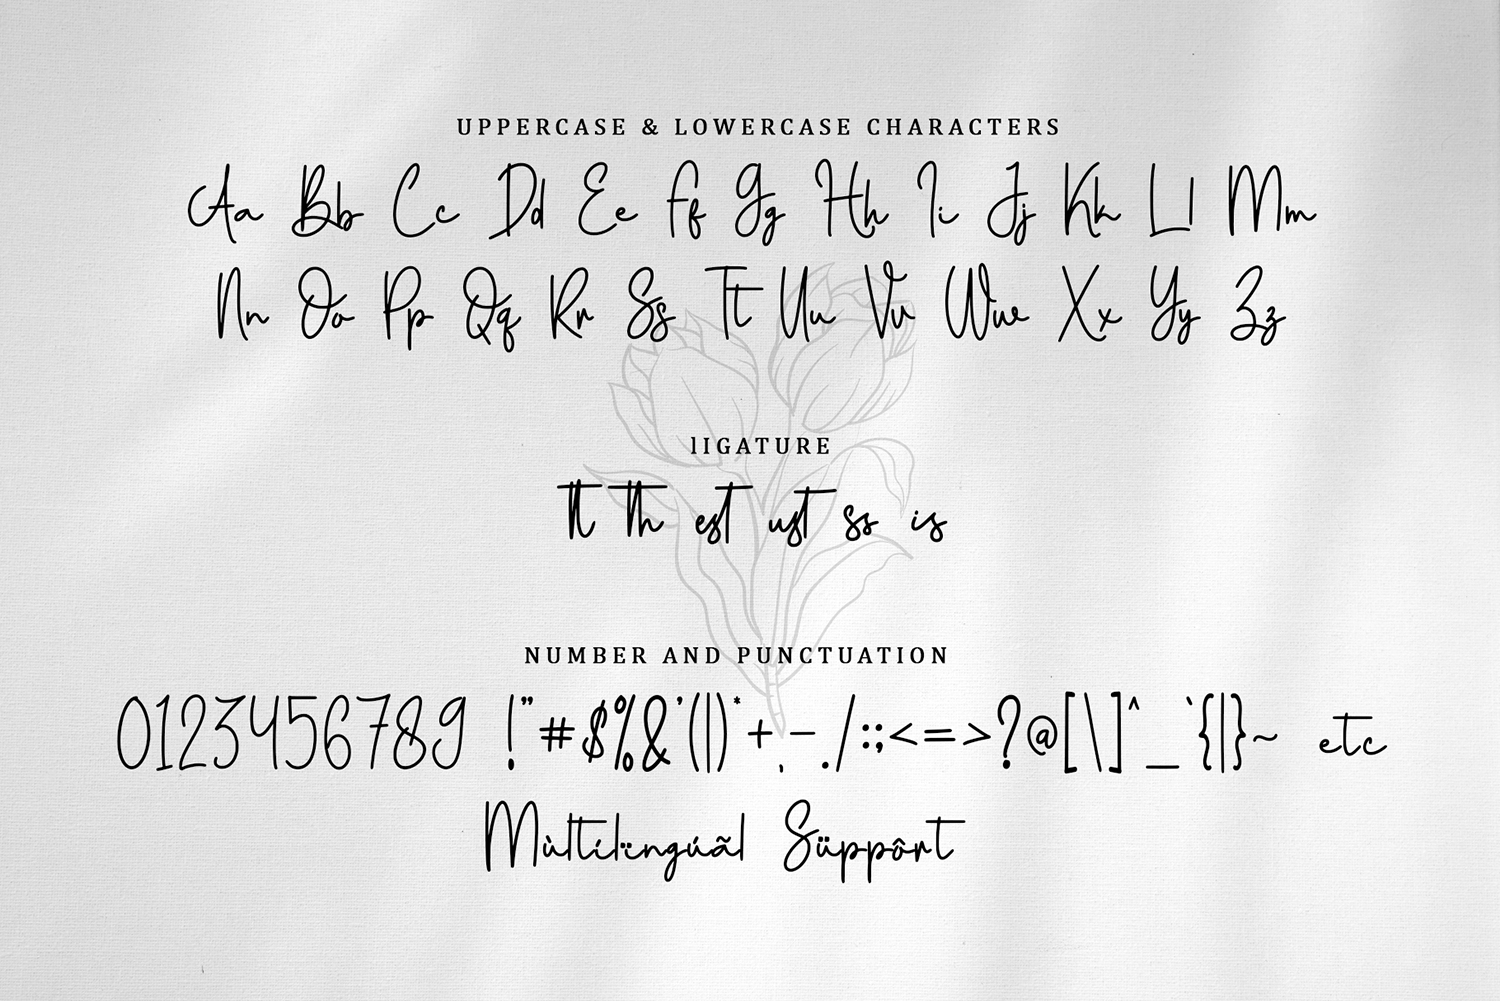 UPPERCASE & LOWERCASE CHARACTERS
Aa Bb Cc Dd Ee Ff Gg Hh Ii Jj Kk Ll Mm
Nn Oo Pp Qq Rr Ss Tt Uu Vv Ww Xx Yy Zz
lIGATURE
tt th est ust ss is
NUMBER AND PUNCTUATION
0123456789 !"#$%&'(|)*+,-./:;<=>?@[\]^_`{|}~ etc
Mùltílïngúãl Süppôrt